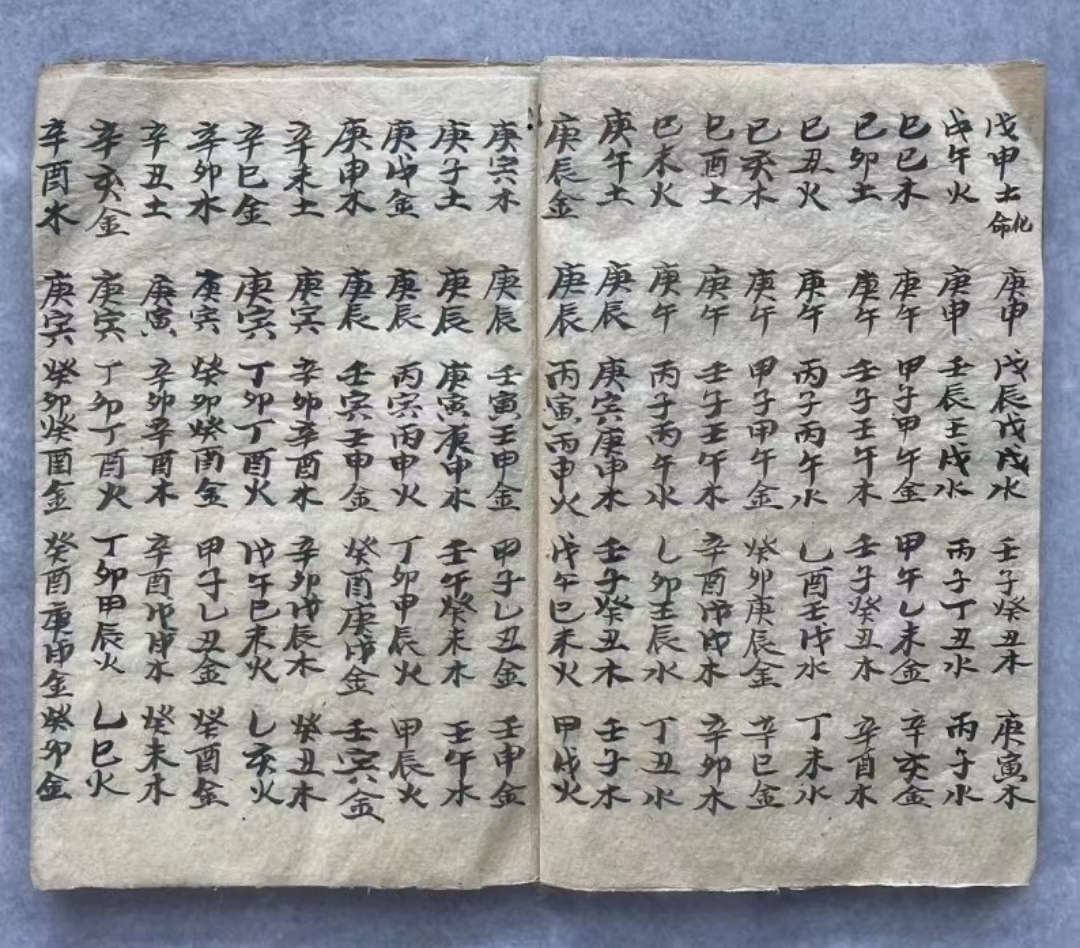 戊申土化命 庚申 戊辰戊戌水 壬子癸丑木 庚寅木
戊午火 庚申 壬辰壬戌水 丙子丁丑水 丙子水
己巳木 庚午 甲子甲午金 甲午乙未金 辛亥金
己卯土 庚午 壬子壬午木 壬子癸丑木 辛酉木
己丑火 庚午 丙子丙午水 乙酉壬戌水 丁未水
己亥木 庚午 甲子甲午金 癸卯庚辰金 辛巳金
己酉土 庚午 壬子壬午木 辛酉戊戌木 辛卯木
己未火 庚午 丙子丙午水 乙卯壬辰水 丁丑水
庚午土 庚辰 庚寅庚申木 壬子癸丑木 壬子木
庚辰金 庚辰 丙寅丙申火 戊午己未火 甲戌火
庚寅木 庚辰 壬寅壬申金 甲子乙丑金 壬申金
庚子土 庚辰 庚寅庚申木 壬午癸未木 壬午木
庚戌金 庚辰 丙寅丙申火 丁卯甲辰火 甲辰火
庚申木 庚辰 壬寅壬申金 癸酉庚戌金 壬寅金
辛未土 庚寅 辛卯辛酉木 辛卯戊辰木 癸丑木
辛巳金 庚寅 丁卯丁酉火 戊午己未火 乙亥火
辛卯木 庚寅 癸卯癸酉金 甲子乙丑金 癸酉金
辛丑土 庚寅 辛卯辛酉木 辛酉戊戌木 癸未木
辛亥金 庚寅 丁卯丁酉火 丁卯甲辰火 乙巳火
辛酉木 庚寅 癸卯癸酉金 癸酉庚戌金 癸卯金